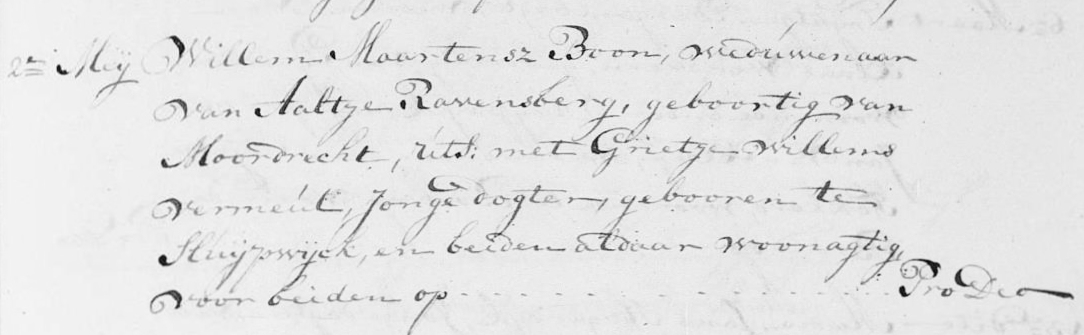 2en Meij Willem Maartensz Boon, wedúwenaar
van Aaltje Ravensberg, geboortig van
Moordrecht, úts: met Grietje Willems
Vermeúl, Jonge dogter, gebooren te
Sluijpwijck, en beiden aldaar woonagtig,
voor beiden op . . . . . . . . . . . . . Pro Deo